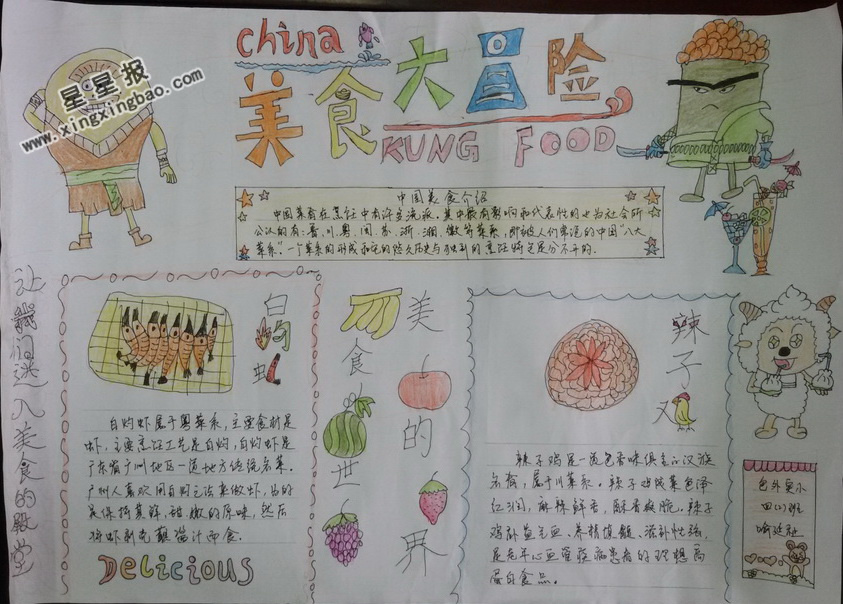 china
美食大冒险
KUNG FOOD
星星报
www.xingxingbao.com
中国美食介绍
中国菜肴在烹饪中有许多流派。其中最有影响和代表性的也为社会所
公认的有：鲁、川、粤、闽、苏、浙、湘、徽等菜系，即被人们常说的中国“八大
菜系”。一个菜系的形成和它的悠久历史与独到的烹饪特色是分不开的。
让我们进入美食的殿堂
白灼虾
白灼虾属于粤菜系，主要食材是
虾，主要烹饪工艺是白灼，白灼虾是
广东省广州地区一道地方传统名菜。
广州人喜欢用白灼之法来做虾，为的
是保持其鲜、甜、嫩的原味，然后
将虾剥壳蘸酱汁而食。
Delicious
美食的世界
辣子又
辣子鸡是一道色香味俱全的汉族
名肴，属于川菜系。辣子鸡成菜色泽
红润，麻辣鲜香，酥香爽脆。辣子
鸡补益气血、养精填髓、滋补性强，
是老年心血管疾病患者的理想高
蛋白食品。
色外实小
四(1)班
喻延